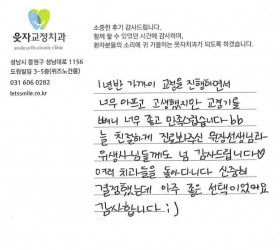 웃자교정치과
성남시 중원구 성남대로 1156
도원빌딩 3-5층(위즈노건물)
031 606 0282
letssmile.co.kr
소중한 후기 감사드립니다.
함께 할 수 있었던 시간에 감사하며,
환자분들의 소리에 귀 기울이는 웃자치과가 되도록 하겠습니다.
1년반 가까이 교정을 진행하면서
너무 아프고 고생했지만 교정기를
빼니 너무 좋고 만족스럽습니다bb
늘 친절하게 진료봐주신 원장선생님과
위생사님들께도 넘 감사드립니다♡
여러 치과들을 돌아다니다 신중히
결정했는데 아주 좋은 선택이었어요
감사합니다 :)